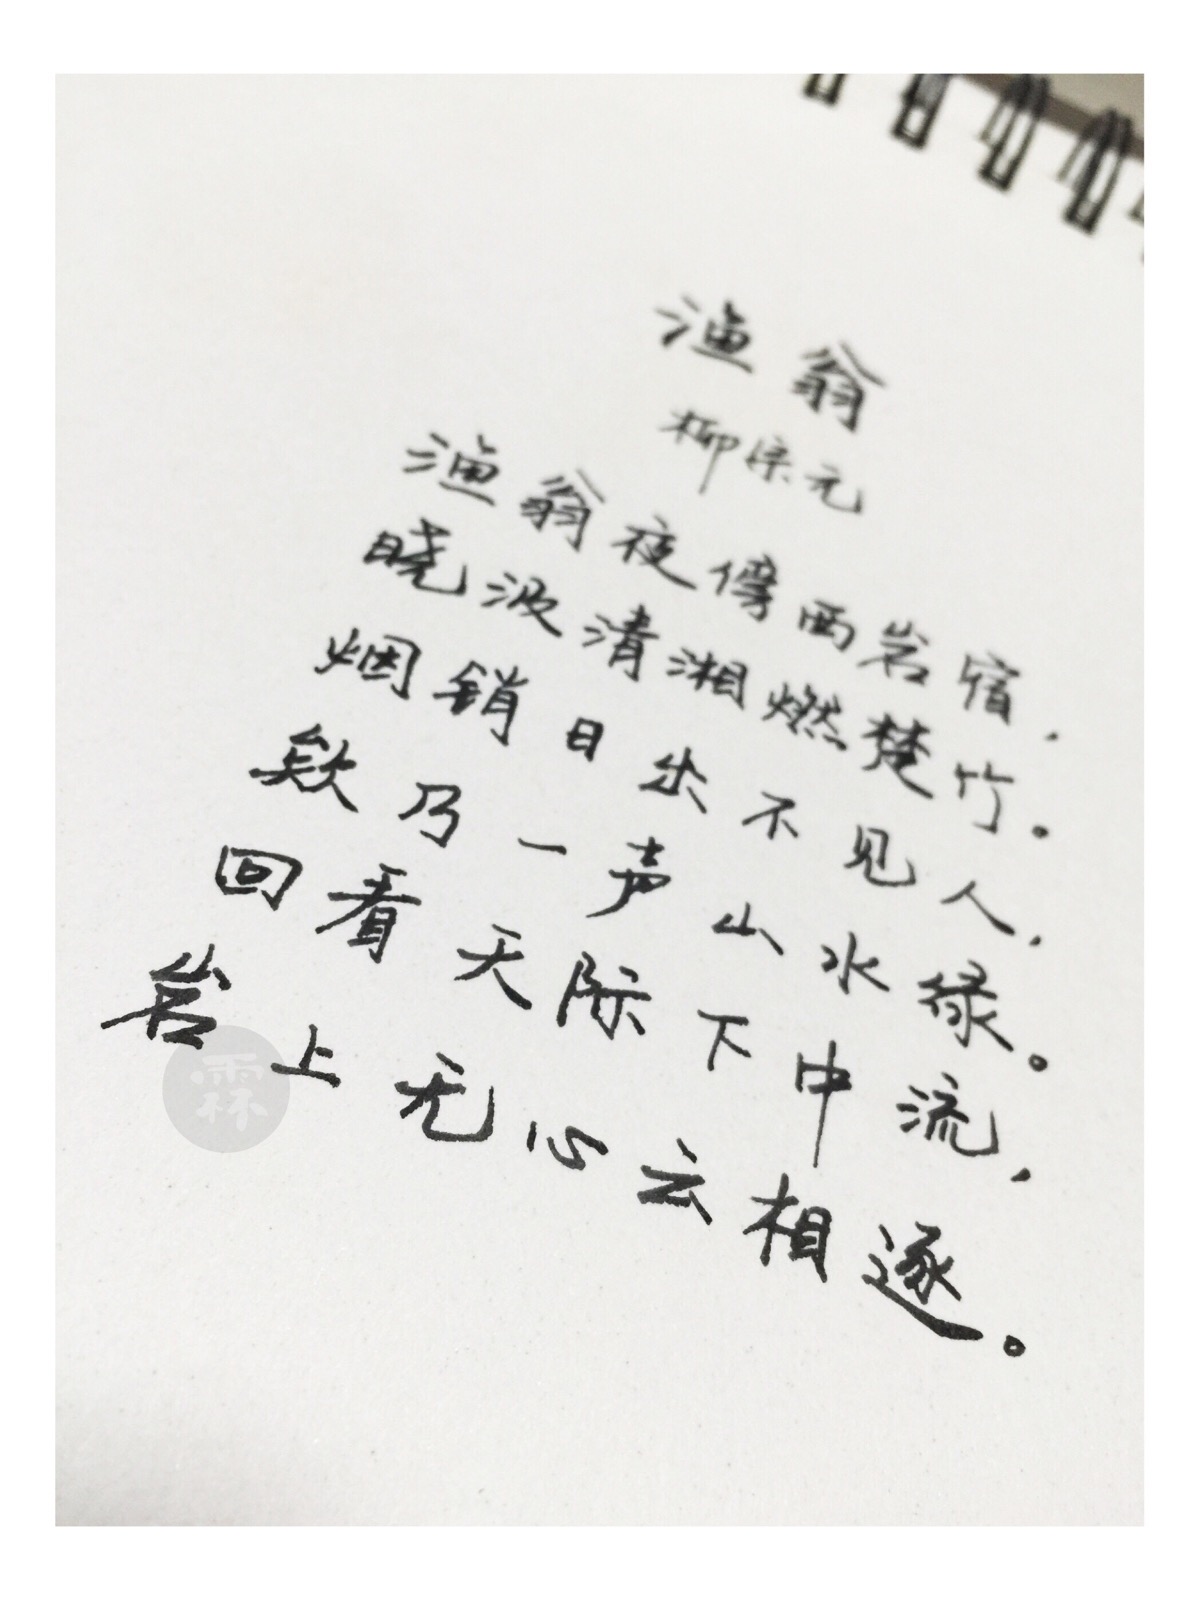 渔翁
柳宗元
渔翁夜傍西岩宿，
晓汲清湘燃楚竹。
烟销日出不见人，
欸乃一声山水绿。
回看天际下中流，
岩上无心云相逐。
霖